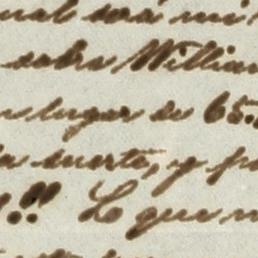 ual será mi
sobre William
lugar de 65.
la suerte, y p
!! Lo que